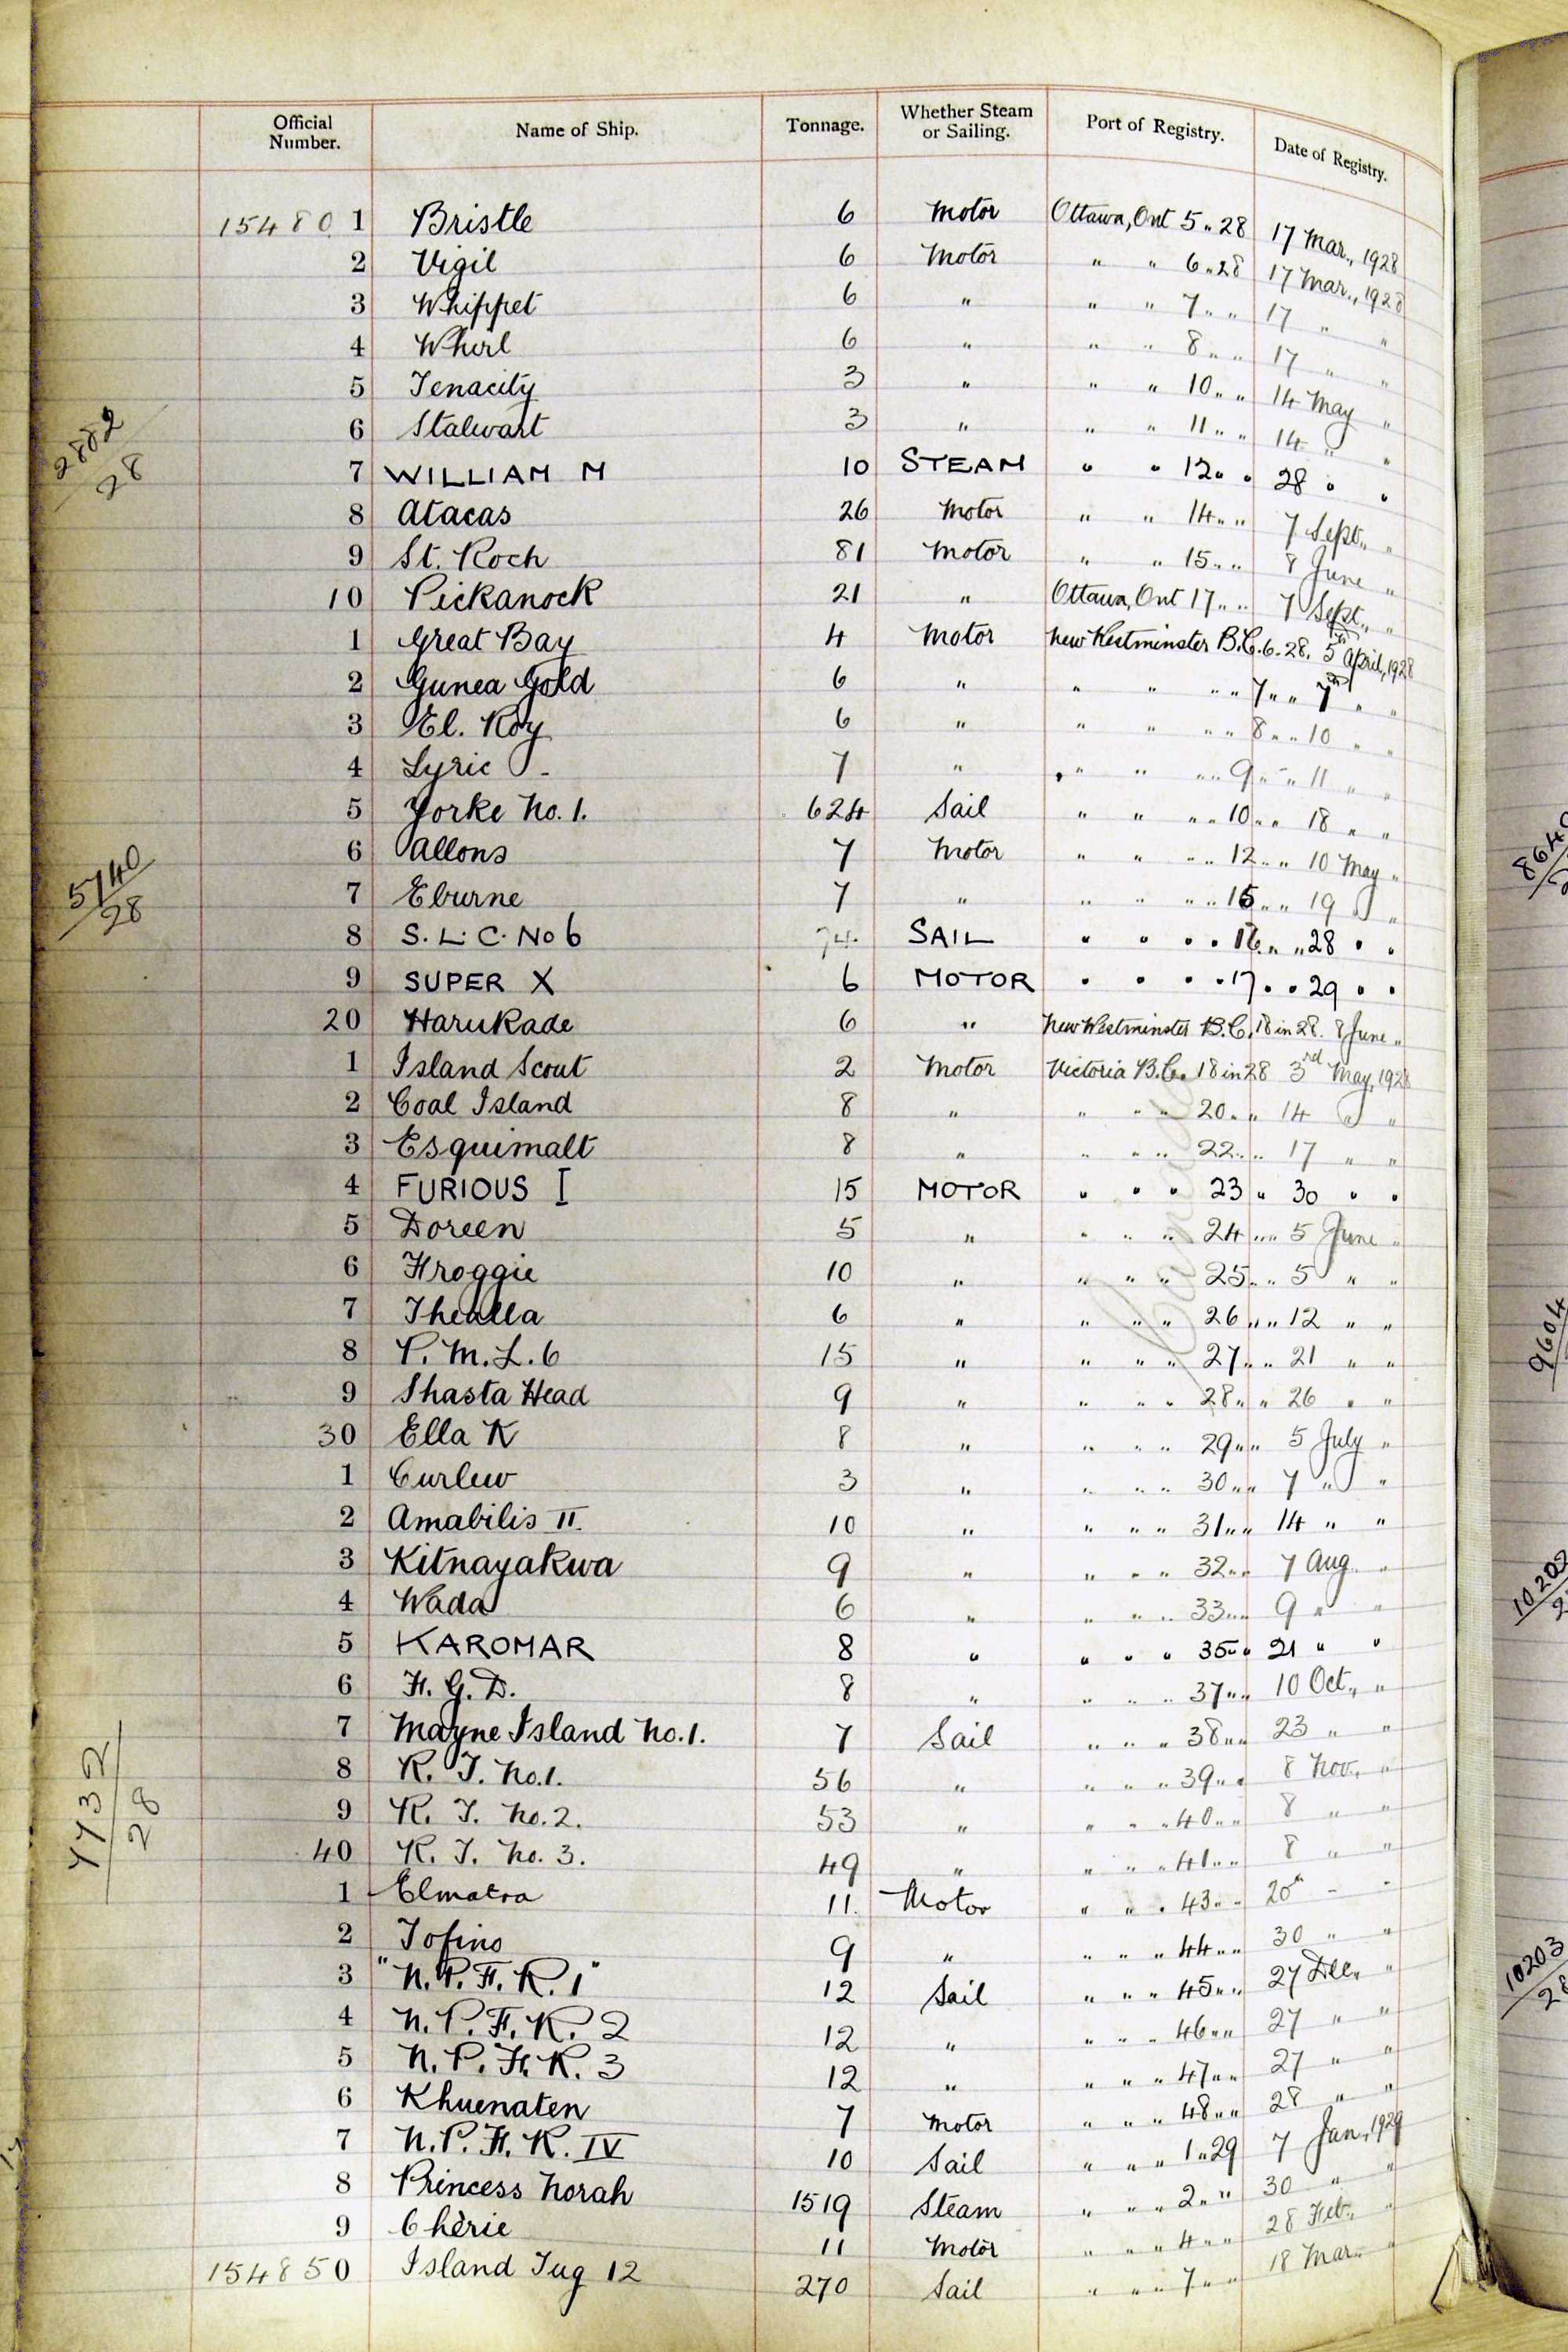 Official Number. Name of Ship. Tonnage. Whether Steam or Sailing. Port of Registry. Date of Registry.
154801 Bristle 6 Motor Ottawa, Ont 5 " 28 17 Mar., 1928
2 Vigil 6 Motor " " 6 " 28 17 Mar., 1928
3 Whippet 6 " " " 7 " " 17 " "
4 Whirl 6 " " " 8 " " 17 " "
5 Tenacity 3 " " " 10 " " 14 May "
6 Stalwart 3 " " " 11 " " 14 " "
2882/28
7 WILLIAM M 10 STEAM " " 12 " " 28 " "
8 Atacas 26 Motor " " 14 " " 7 Sept., "
9 St. Roch 81 Motor " " 15 " " 8 June "
10 Pickanock 21 " Ottawa, Ont 17 " " 7 Sept., "
1 Great Bay 4 Motor New Westminster B.C. 6. 28. 5th April, 1928
2 Gunea Gold 6 " " " " " 7 " " 7th " "
3 El. Roy 6 " " " " " 8 " " 10 " "
4 Lyric 7 " " " " " 9 " " 11 " "
5 Yorke No. 1. 624 Sail " " " " 10 " " 18 " "
6 Allons 7 Motor " " " " 12 " " 10 May "
5740/28
7 Eburne 7 " " " " " 15 " " 19 " "
8 S. L. C. No 6 74. SAIL " " " " 16 " " 28 " "
9 SUPER X 6 MOTOR " " " " 17 " " 29 " "
20 Harukade 6 " New Westminster B.C. 18 in 28. 8 June "
1 Island Scout 2 Motor Victoria B.C. 18 in 28 3rd May, 1928
2 Coal Island 8 " " " " 20 " " 14 " "
3 Esquimalt 8 " " " " 22 " " 17 " "
4 FURIOUS I 15 MOTOR " " " 23 " 30 " "
5 Doreen 5 " " " " 24 " " 5 June "
6 Froggie 10 " " " " 25 " " 5 " "
7 Thealla 6 " " " " 26 " " 12 " "
8 P. M. L. 6 15 " " " " 27 " " 21 " "
9 Shasta Head 9 " " " " 28 " " 26 " "
30 Ella K 8 " " " " 29 " " 5 July "
1 Curlew 3 " " " " 30 " " 7 " "
2 Amabilis II. 10 " " " " 31 " " 14 " "
3 Kitnayakwa 9 " " " " 32 " " 7 Aug. "
4 Wada 6 " " " " 33 " " 9 " "
5 KAROMAR 8 " " " " 35 " " 21 " "
6 F. G. D. 8 " " " " 37 " " 10 Oct., "
7 Mayne Island No. 1. 7 Sail " " " 38 " " 23 " "
8 R. T. No. 1. 56 " " " " 39 " " 8 Nov., "
7732/28
9 R. T. No. 2. 53 " " " " 40 " " 8 " "
40 R. T. No. 3. 49 " " " " 41 " " 8 " "
1 Elmatra 11. Motor " " " 43 " " 20th " "
2 Tofino 9 " " " " 44 " " 30 " "
3 "N. P. F. K. 1" 12 Sail " " " 45 " " 27 Dec., "
4 N. P. F. K. 2 12 " " " " 46 " " 27 " "
5 N. P. F. K. 3 12 " " " " 47 " " 27 " "
6 Khuenaten 7 Motor " " " 48 " " 28 " "
7 N. P. F. K. IV 10 Sail " " " 1 " 29 7 Jan., 1929
8 Princess Norah 1519 Steam " " " 2 " " 30 " "
9 Chèrie 11 Motor " " " 4 " " 28 Feb., "
154850 Island Tug 12 270 Sail " " " 7 " " 18 Mar. "
9604
10203